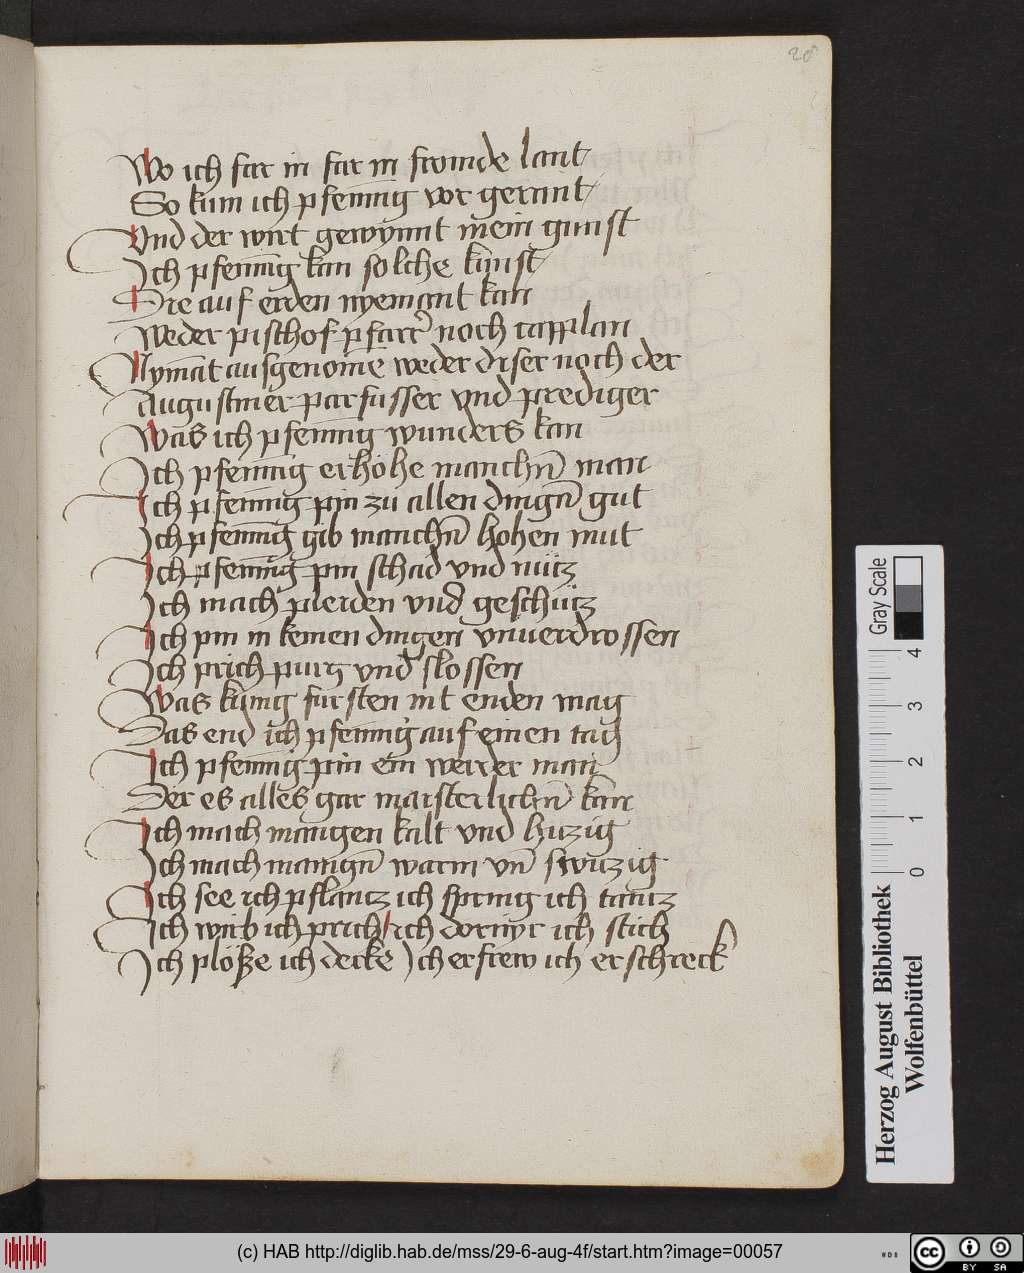 28
Wo ich far in far in fromde lant
So kum ich pfennig vor gerant
Vnd der wirt gewynnt mein gunst
Ich pfennig kan solche kunst
Die auf erden nyemant kan
Weder pischof pfarrer noch capplan
Nymāt ausgenomē weder diser noch der
Augustiner parfusser vnd prediger
Was ich pfennig wunders kan
Ich pfennig erhohe manchn̄ man
Ich pfennig pin zu allen dingn̄ gut
Ich pfennig gib manchn̄ hohen mut
Ich pfennig pin schad vnd nütz
Ich mach pierden vnd geschütz
Ich pin in keinen dingen vnuerdrossen
Ich prich purg vnd slossen
Was kunig fursten nit enden mag
Das end ich pfennig auf einen tag
Ich pfennig pin ein werder man
Der es alles gar maisterlichn̄ kan
Ich mach mangen kalt vnd hitzig
Ich mach manign̄ warm vn̄ switzig
Ich see ich pflantz ich spring ich tantz
Ich wirb ich prich ich dornyr ich stich
Ich plösse ich decke Ich erfrew ich erschreck
Gray Scale
0 1 2 3 4
Herzog August Bibliothek
Wolfenbüttel
(c) HAB http://diglib.hab.de/mss/29-6-aug-4f/start.htm?image=00057
WDB
cc BY SA